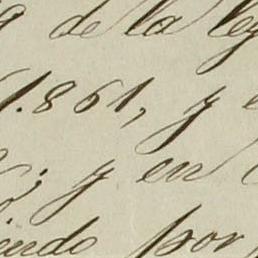 de la ley
1.861, y
; y en
endo por